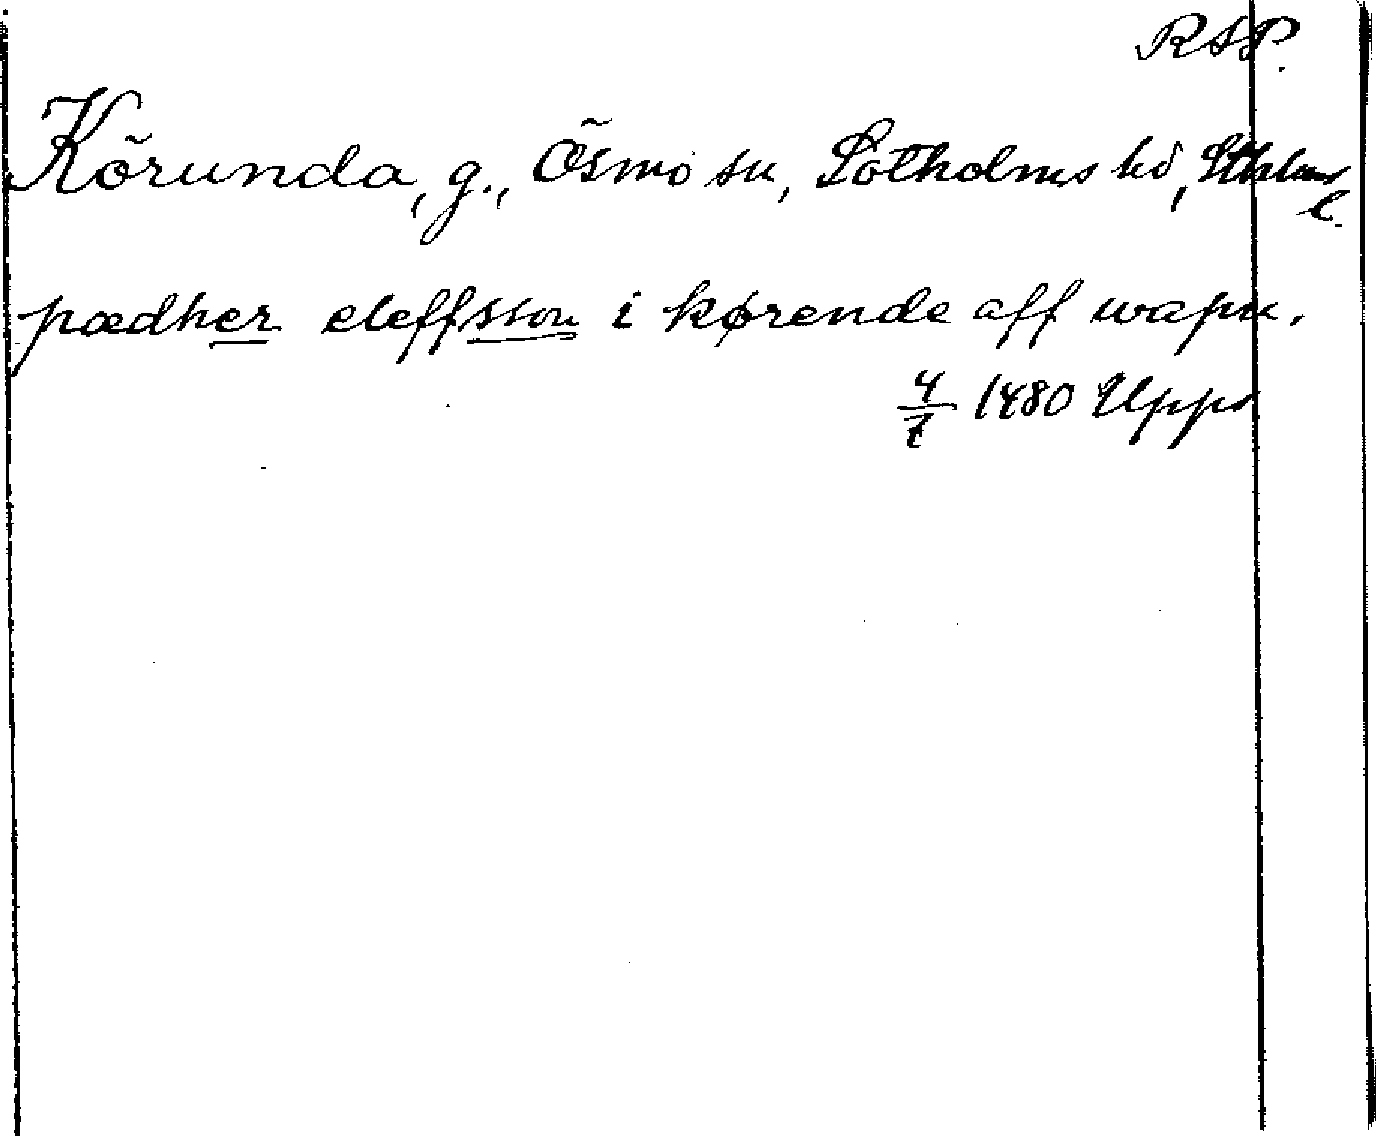 RAP.
Körunda, g., Ösmo sn, Sotholms hd, Sthlms
l.
pædher eleffsson i kørende aff wapn.
4/7 1480 Upps